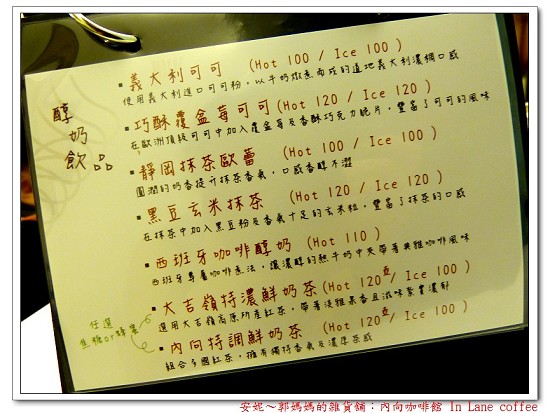 醇奶飲品
▪義大利可可 (Hot 100 / Ice 100 )
使用義大利進口可可粉，以牛奶燉煮而成的道地義大利濃稠口感
▪巧酥覆盆莓可可 (Hot 120 / Ice 120 )
在歐洲頂級可可中加入覆盆莓及香酥巧克力脆片，豐富了可可的風味
▪靜岡抹茶歐蕾 (Hot 100 / Ice 100 )
圓潤的奶香提升抹茶香氣，口感香醇不澀
▪黑豆玄米抹茶 (Hot 120 / Ice 120 )
在抹茶中加入黑豆粉及香氣十足的玄米粒，豐富了抹茶的口感
▪西班牙咖啡醇奶 (Hot 110 )
西班牙專屬咖啡煮法，讓濃醇的熱牛奶中夾帶著典雅咖啡風味
▪大吉嶺特濃鮮奶茶 (Hot 120壺/ Ice 100 )
選用大吉嶺高原所產紅茶，帶著淡雅果香且滋味紮實濃郁
任選
焦糖or蜂蜜
▪內向特調鮮奶茶 (Hot 120壺/ Ice 100 )
組合多國紅茶，擁有獨特香氣及濃厚茶感
安妮～郭媽媽的雜貨舖：內向咖啡館 In Lane coffee